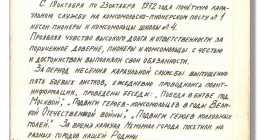 С 19 октября по 23 октября 1972 года почётную кара-
ульную службу на комсомольско-пионерском посту № 1
несли пионеры и комсомольцы школы № 4.
Проявляя чувство высокого долга и ответственности за
порученное доверие, пионеры и комсомольцы с честью
и достоинством выполняли свои обязанности.
За период несения караульной службы выпущено
пять боевых листков, ежедневно проводились полит-
информации, проведены беседы: „Победа в битве под
Москвой", „Подвиги героев-комсомольцев в годы Вели-
кой Отечественной войны", „Подвиги героев малоярос-
Мемориал города посетили из
разных городов нашей Родины